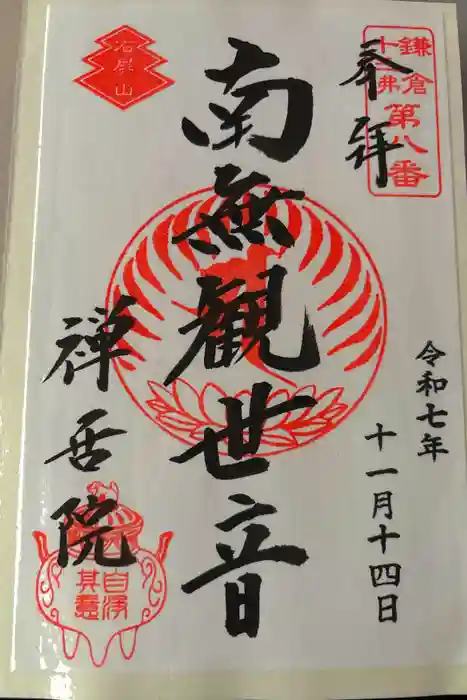 鎌倉
十三佛
第八番
奉拝
令和七年
十一月十四日
南無観世音
石屏山
禅居院
自浄
其意